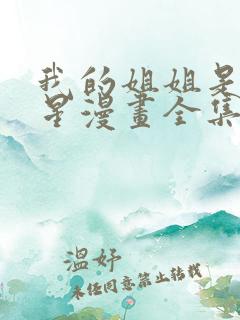 我的姐姐是
星漫畫全集
溫妤
未任同意禁止转载